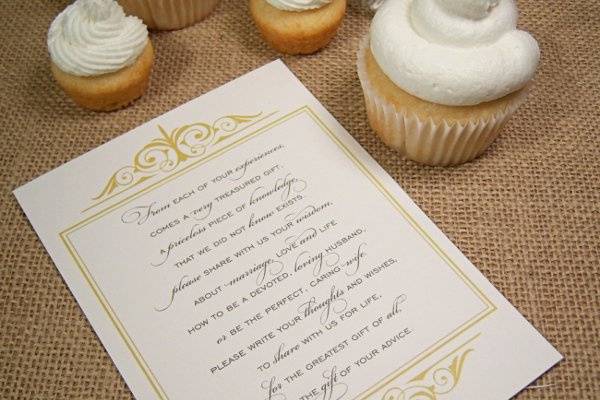 From EACH OF YOUR experiences,
COMES A very TREASURED GIFT.
a priceless PIECE OF knowledge,
THAT WE DID NOT know EXISTS.
please SHARE WITH US YOUR wisdom,
ABOUT marriage, LOVE and LIFE
HOW TO BE A DEVOTED, loving HUSBAND,
or BE THE PERFECT, CARING wife.
PLEASE WRITE YOUR thoughts AND WISHES,
TO share WITH US FOR LIFE,
for THE GREATEST GIFT OF all,
the gift OF YOUR ADVICE